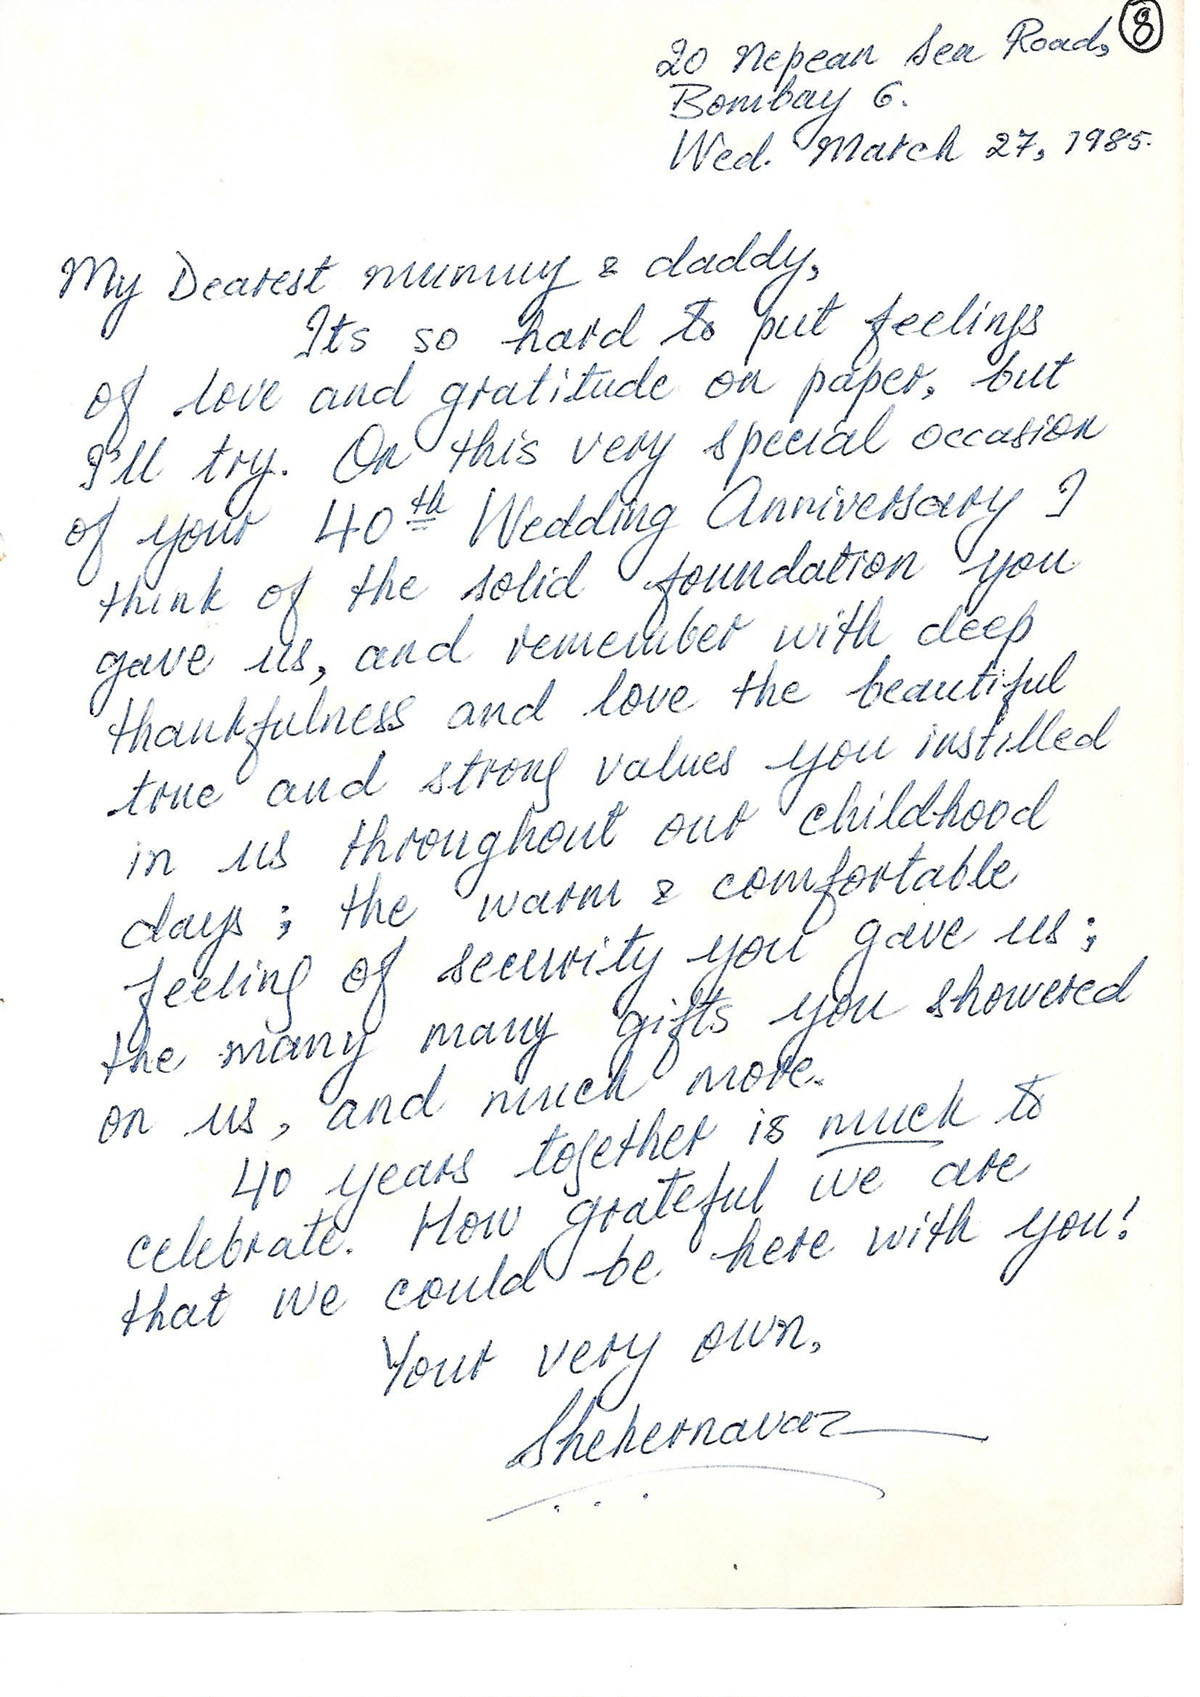 8
20 Nepean Sea Road,
Bombay 6.
Wed. March 27, 1985.
My Dearest mummy & daddy,
Its so hard to put feelings
of love and gratitude on paper, but
I'll try. On this very special occasion
of your 40th Wedding Anniversary I
think of the solid foundation you
gave us, and remember with deep
thankfulness and love the beautiful
true and strong values you instilled
in us throughout our childhood
days; the warm & comfortable
feeling of security you gave us;
the many many gifts you showered
on us, and much more.
40 years together is much to
celebrate. How grateful we are
that we could be here with you!
Your very own,
Shehernavaz